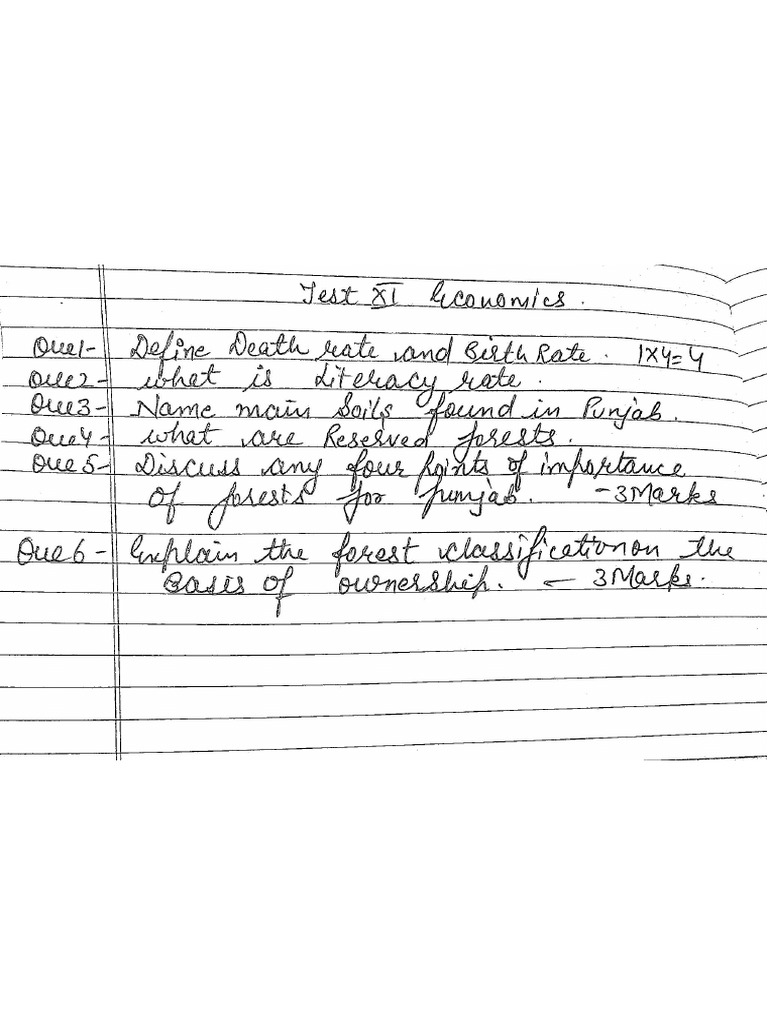 Test XI Economics.
Que1- Define Death rate and Birth Rate. 1x4=4
Que2- what is Literacy rate.
Que3- Name main Soils found in Punjab.
Que4- what are Reserved forests.
Que5- Discuss any four Points of importance
of forests for Punjab. -3Marks
Que6- Explain the forest classification on the
Basis of ownership. - 3Marks.